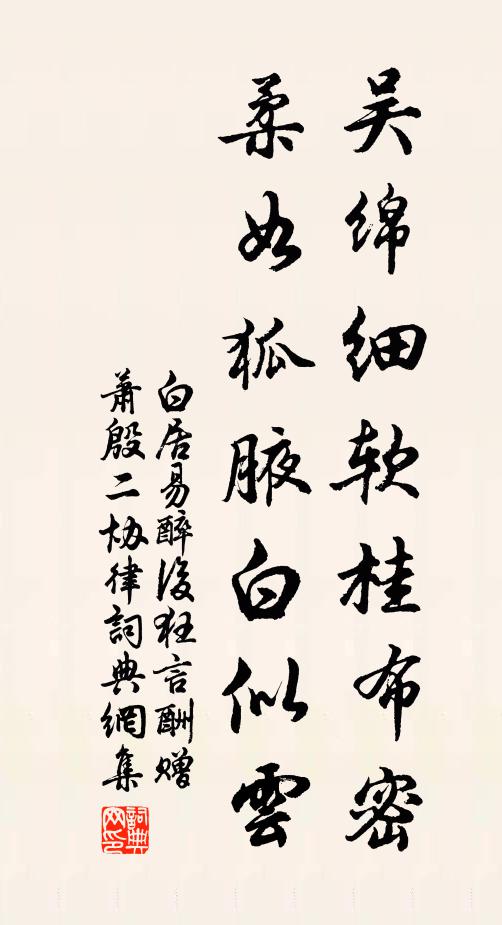 吴绵细软桂布密
柔如狐腋白似雲
白居易醉後狂言酬赠
萧殷二协律詞典網集
詞典
网印